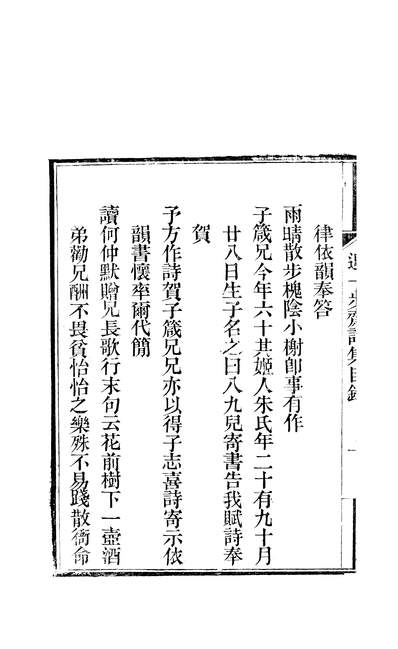 退一步齋詩集目錄
一
律依韻奉答
雨晴散步槐陰小榭卽事有作
子箴兄今年六十其姬人朱氏年二十有九十月
廿八日生子名之曰八九兒寄書告我賦詩奉
賀
予方作詩賀子箴兄兄亦以得子志喜詩寄示依
韻書懷率爾代簡
讀何仲默贈兄長歌行末句云花前樹下一壺酒
弟勸兄酬不畏貧怡怡之樂殊不易踐散衙命